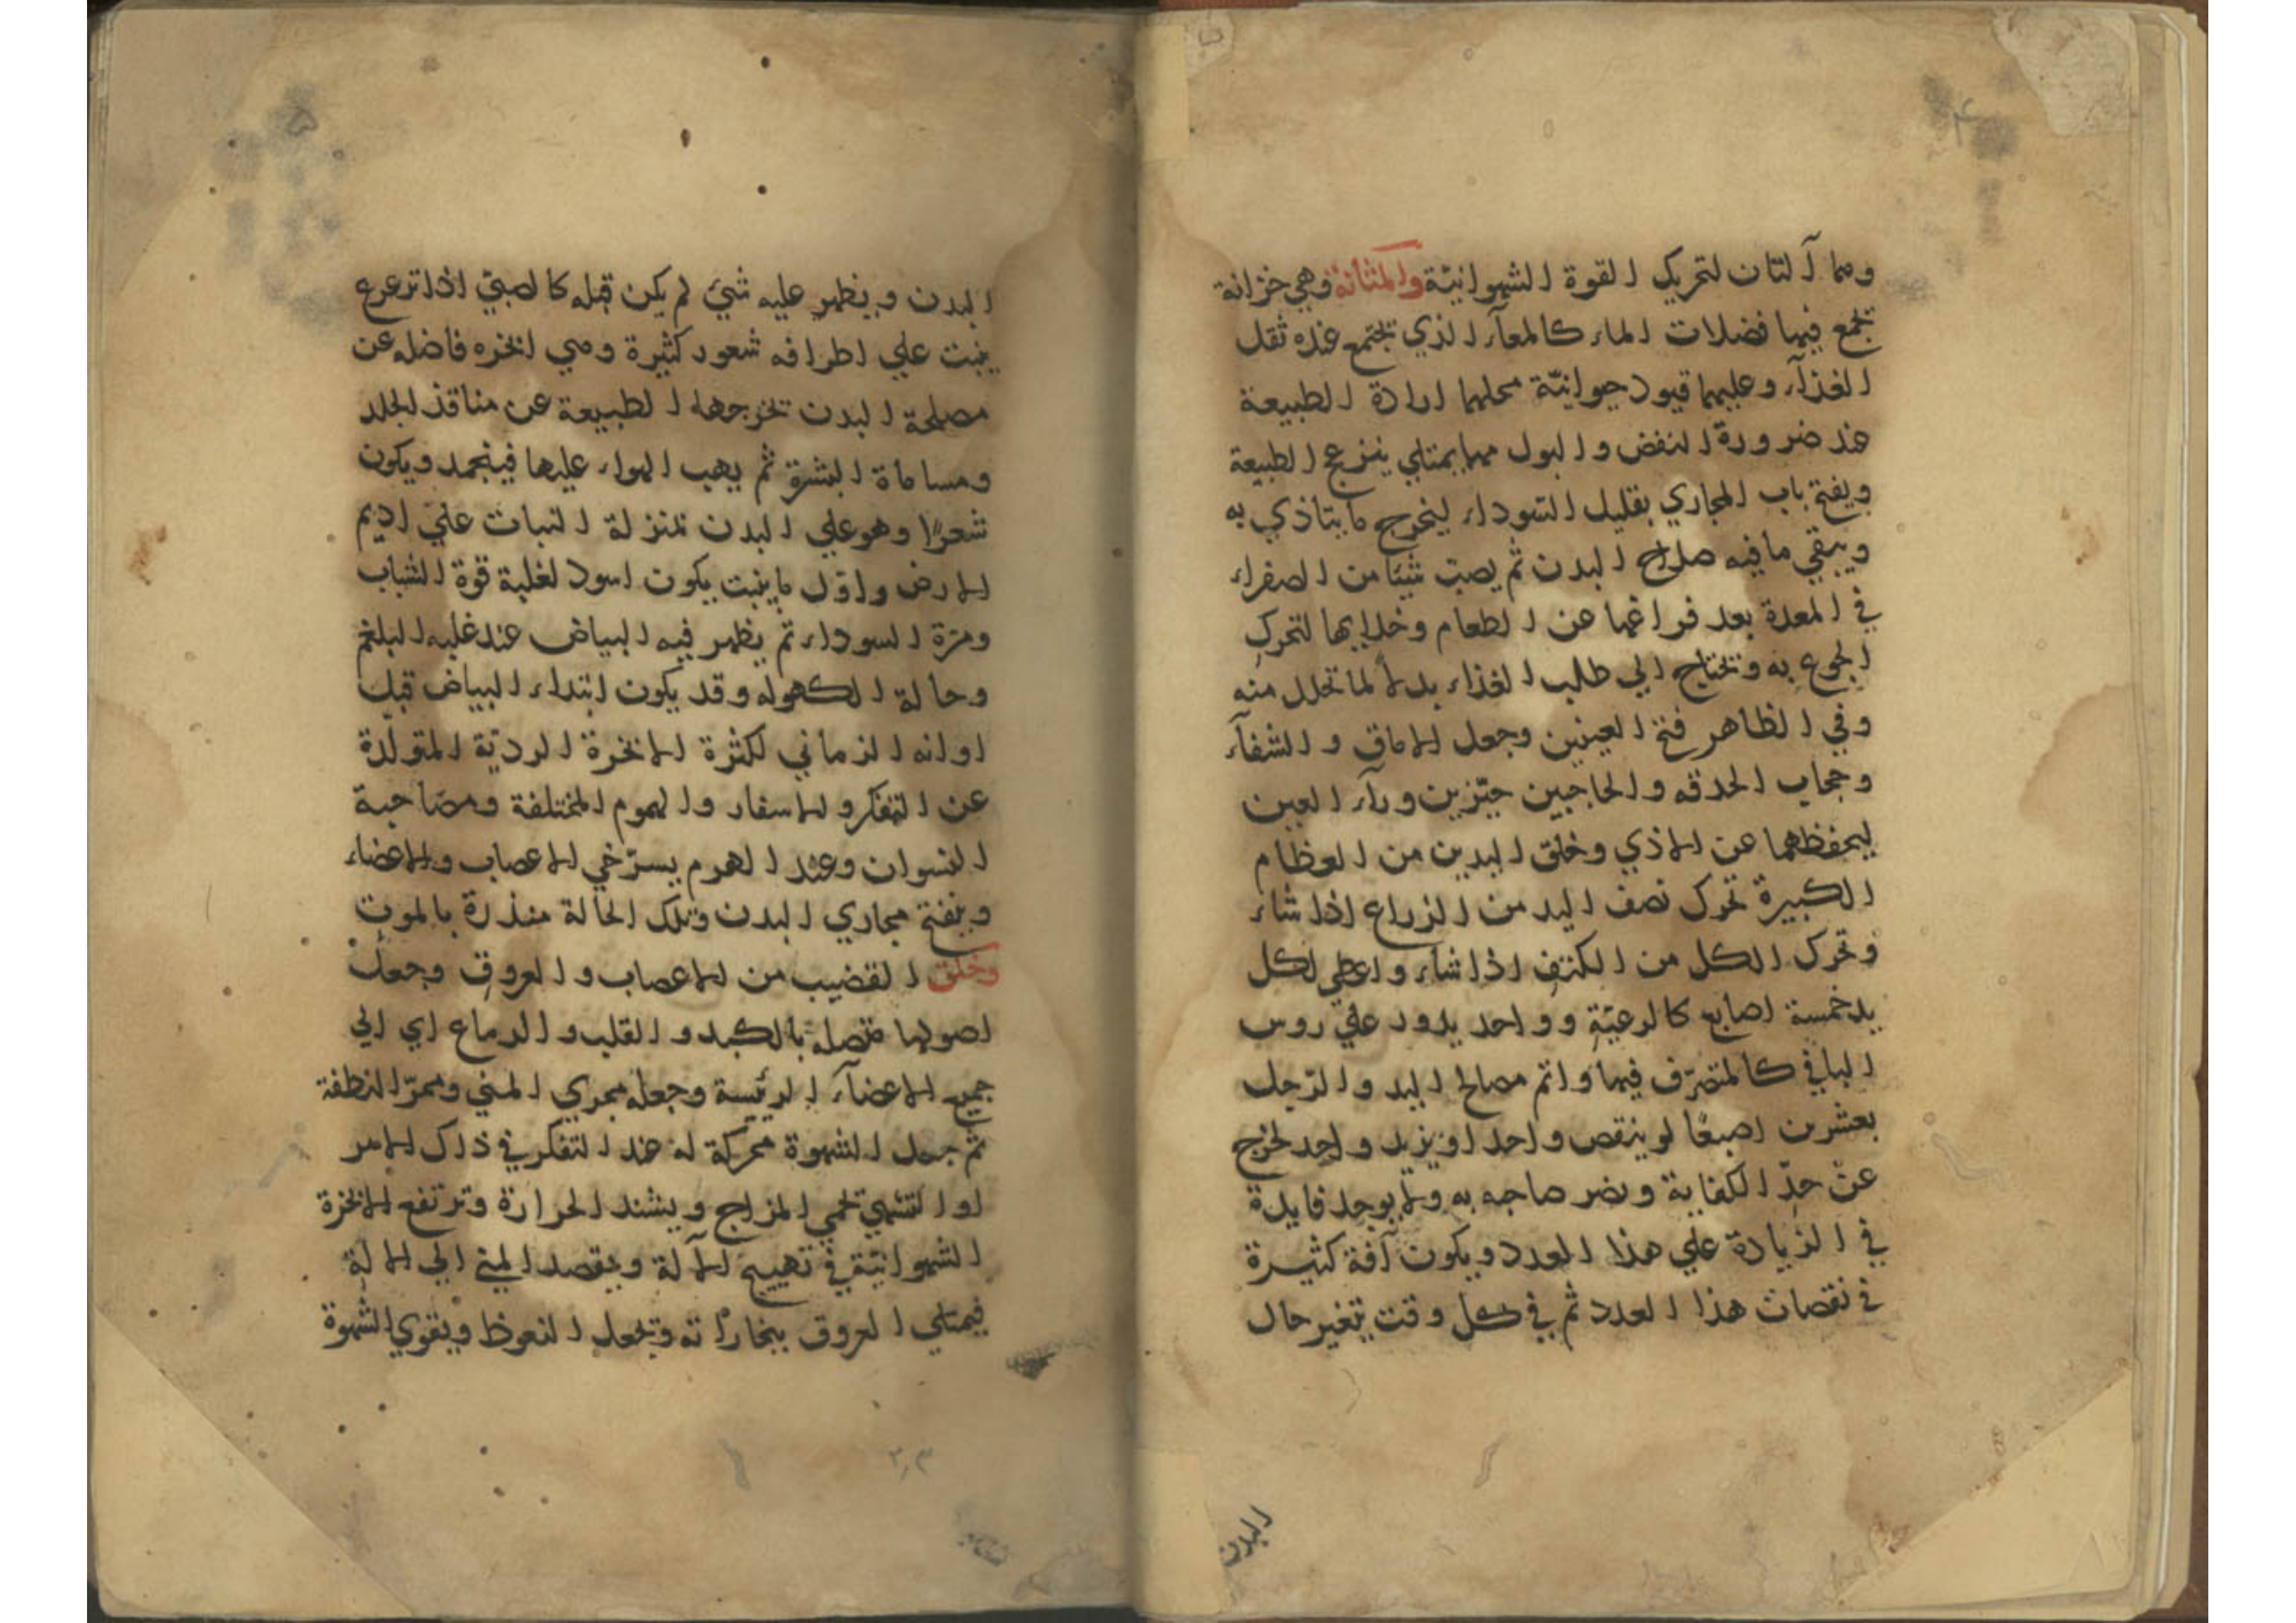 وهما آلتان لتحريك القوة الشهوانيّة والمثانة وهي خزانة
تجمع فيها فضلات الماء كالمعآء الذي يجتمع عنده ثقل
الغذآء وعليهما قيود حيوانيّة محلهما ارادة الطبيعة
عند ضرورة النفض والبول مهما يمتلي ينزعج الطبيعة
ويفتح باب المجاري بقليل السّوداء ليخرج ما يتاذي به
ويبقي ما فيه صلاح البدن ثم يصبّ شيئا من الصفراء
في المعدة بعد فراغها عن الطعام وخلايها لتحرك
الجوع به وتحتاج الي طلب الغذاء بدلا لما تحلل منه
وفي الظاهر فتح العينين وجعل الاماق والشفآء
وحجاب الحدقه والحاجبين حيّزين ورآء العين
ليحفظهما عن الاذي وخلق اليدين من العظام
الكبيرة تحرك نصف اليد من الزراع اذا شاء
وتحرك الكل من الكتف اذا شاء واعطي لكل
يد خمسة اصابع كالرعيّة وواحد يدور علي روس
الباقي كالمتصرّف فيها واتم مصالح اليد والرّجل
بعشرين اصبعًا لو ينقص واحد او يزيد واحد لخرج
عن حدّ الكفاية ويضر صاحبه به ولا يوجد فايدة
في الزيادة علي هذا العدد ويكون آفة كثيرة
في نقصان هذا العدد ثم في كل وقت يتغير حال
البدن
البدن ويظهر عليه شئ لم يكن قبله كالصبيّ اذا ترعرع
ينبت علي اطرافه شعور كثيرة وهي ابخره فاضله عن
مصلحة البدن تخرجها الطبيعة عن منافذ الجلد
ومساماة البشرة ثم يهب الهواء عليها فينجمد ويكون
شعرًا وهو علي البدن بمنزلة النبات علي اديم
الارض واوّل ما ينبت يكون اسود لغلبة قوة الشباب
ومرّة السوداء ثم يظهر فيه البياض عند غلبه البلغم
وحالة الكهوله وقد يكون ابتداء البياض قبل
اوانه الزماني لكثرة الابخرة الرديّة المتولّدة
عن التفكر والاسفار والهموم المختلفة ومصاحبة
النسوان وعند الهرم يسترخي الاعصاب والاعضاء
وينفتح مجاري البدن وتلك الحالة منذرة بالموت
وخلق القضيب من الاعصاب والعروق وجعل
اصولها متصله بالكبد والقلب والدماغ اي الي
جميع الاعضآء الرئيسة وجعله مجري المني وممرّ النطفة
ثم جعل الشهوة محركة له عند التفكر في ذلك الامر
او التشهي تحمي المزاج ويشتد الحرارة وترتفع الابخرة
الشهوانيّة في تهييج الآلة ويقصد المني الي الالة
فيمتلي العروق بخاراته وتجعل النعوظ ويقوي الشهوة